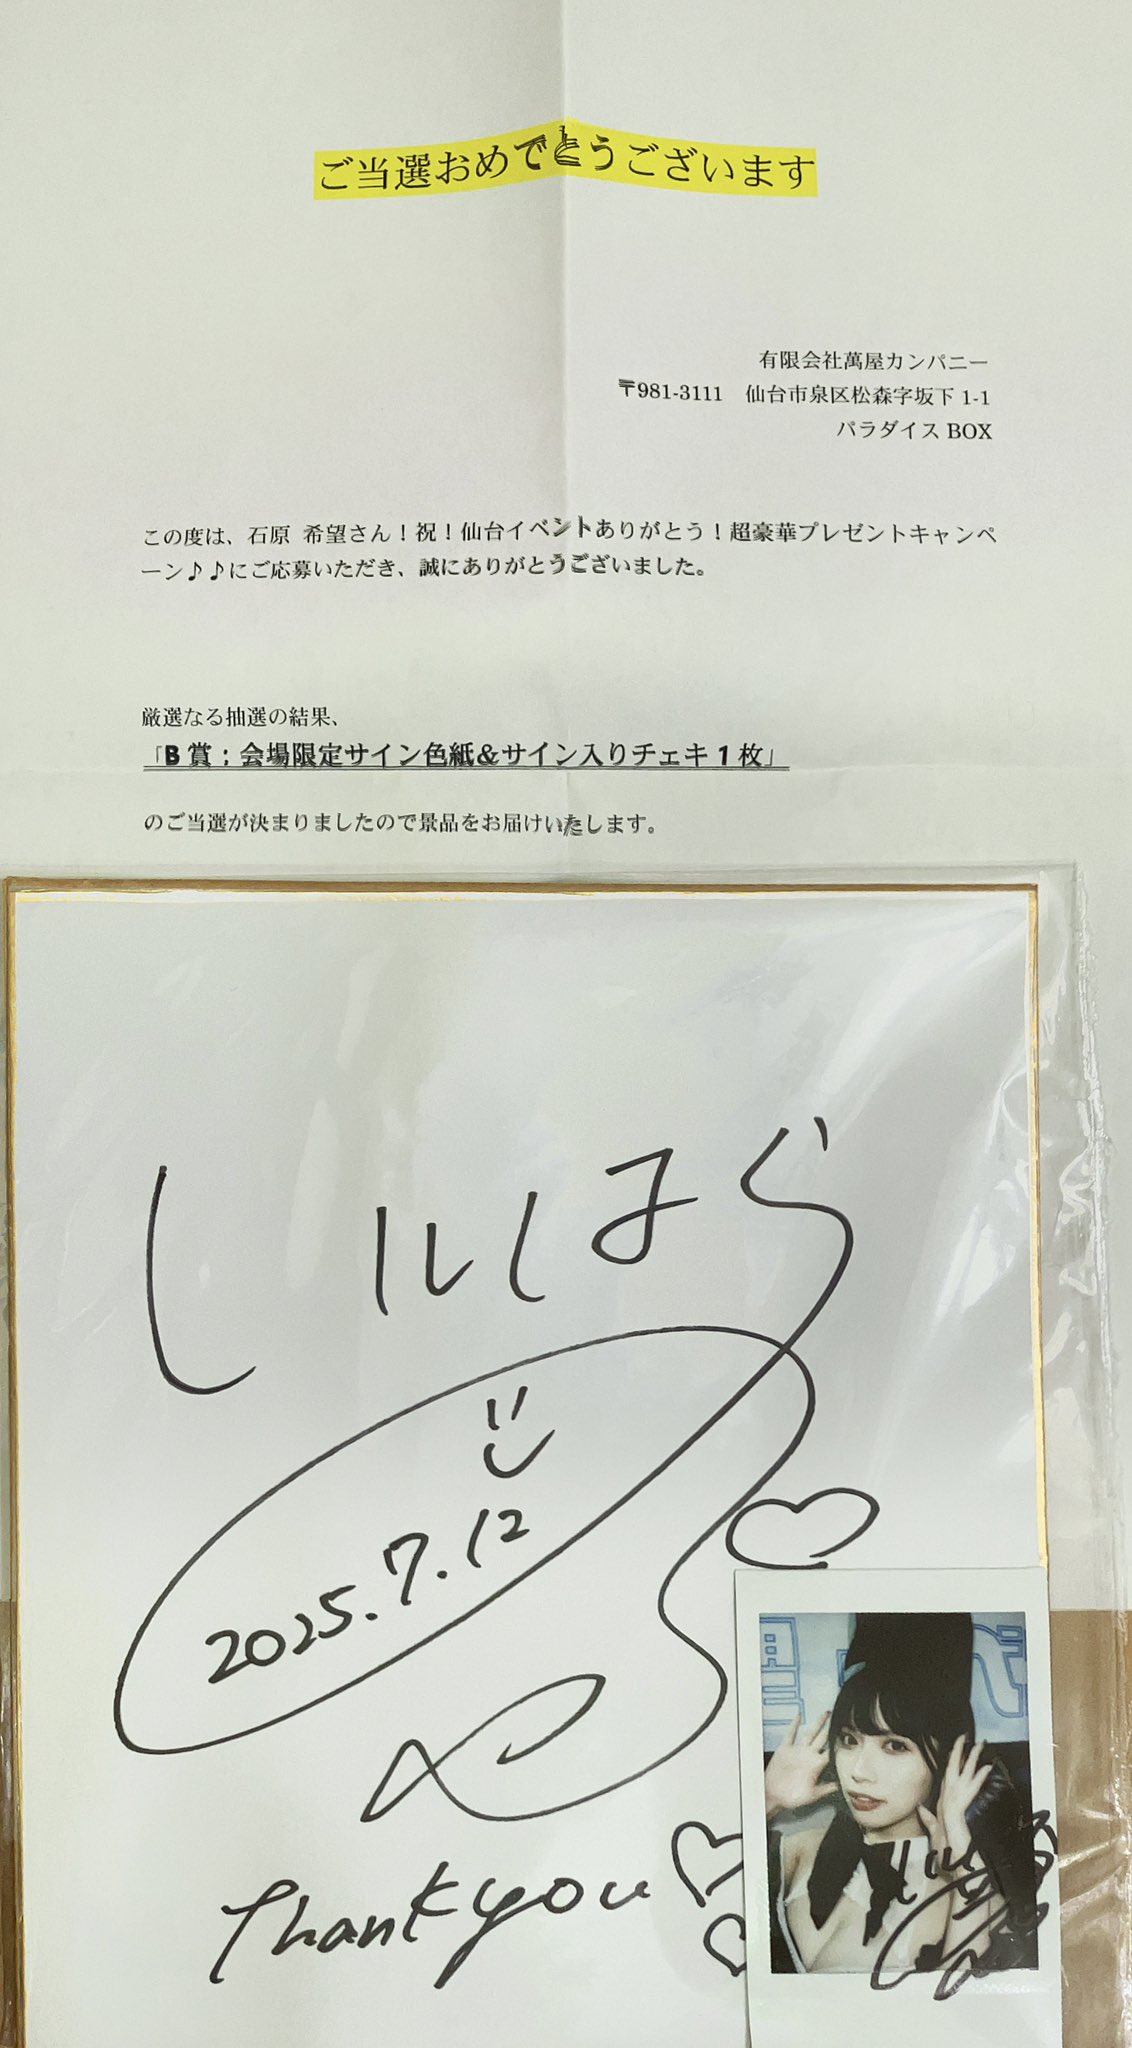 ご当選おめでとうございます
有限会社萬屋カンパニー
〒981-3111 仙台市泉区松森字坂下 1-1
パラダイス BOX
この度は、石原 希望さん！祝！仙台イベントありがとう！超豪華プレゼントキャンペ
ーン♪♪にご応募いただき、誠にありがとうございました。
厳選なる抽選の結果、
「B 賞；会場限定サイン色紙＆サイン入りチェキ 1 枚」
のご当選が決まりましたので景品をお届けいたします。
いしはら
2025.7.12
Thank you